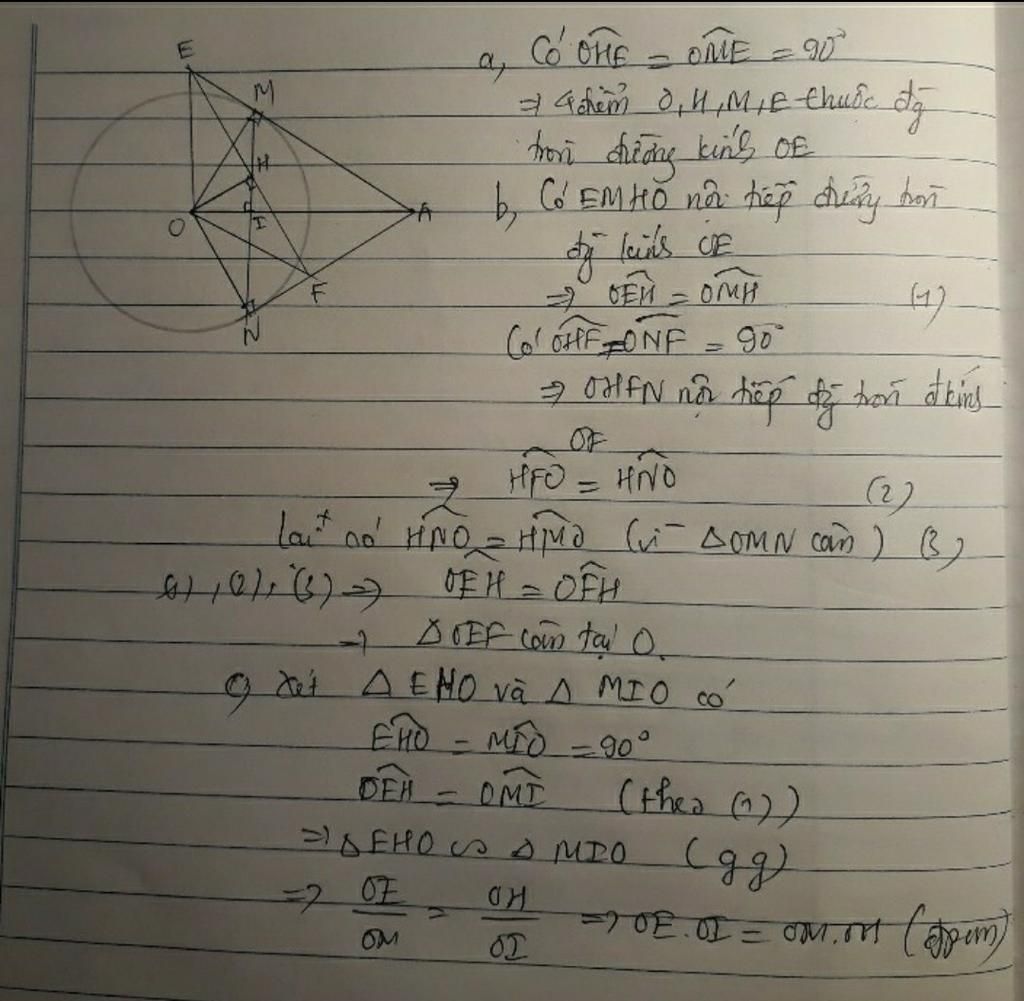 E
M
H
O
I
A
F
N
a, Có OHE = OME = 90°
⇒ 4 điểm O, H, M, E thuộc đg
tròn đường kính OE
b, Có EMHO nội tiếp đường tròn
đg kính OE
⇒ OEH = OMH (1)
Có OHF = ONF = 90°
⇒ OHFN nội tiếp đg tròn đkính
OF
⇒ HFO = HNO (2)
Lại có HNO = HMO (vì ΔOMN cân) (3)
(1), (2), (3) ⇒ OEH = OFH
⇒ ΔOEF cân tại O.
c) Xét Δ EHO và Δ MIO có
EHO = MIO = 90°
OEH = OMI (theo (1))
⇒ Δ EHO ∽ Δ MIO (gg)
⇒ OE/OM = OH/OI ⇒ OE.OI = OM.OH (đpcm)